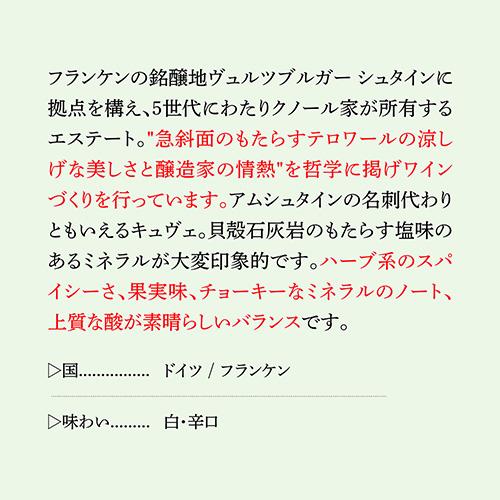 フランケンの銘醸地ヴュルツブルガー シュタインに
拠点を構え、5世代にわたりクノール家が所有する
エステート。"急斜面のもたらすテロワールの涼し
げな美しさと醸造家の情熱"を哲学に掲げワイン
づくりを行っています。アムシュタインの名刺代わり
ともいえるキュヴェ。貝殻石灰岩のもたらす塩味の
あるミネラルが大変印象的です。ハーブ系のスパ
イシーさ、果実味、チョーキーなミネラルのノート、
上質な酸が素晴らしいバランスです。
▷国................ ドイツ / フランケン
▷味わい......... 白・辛口